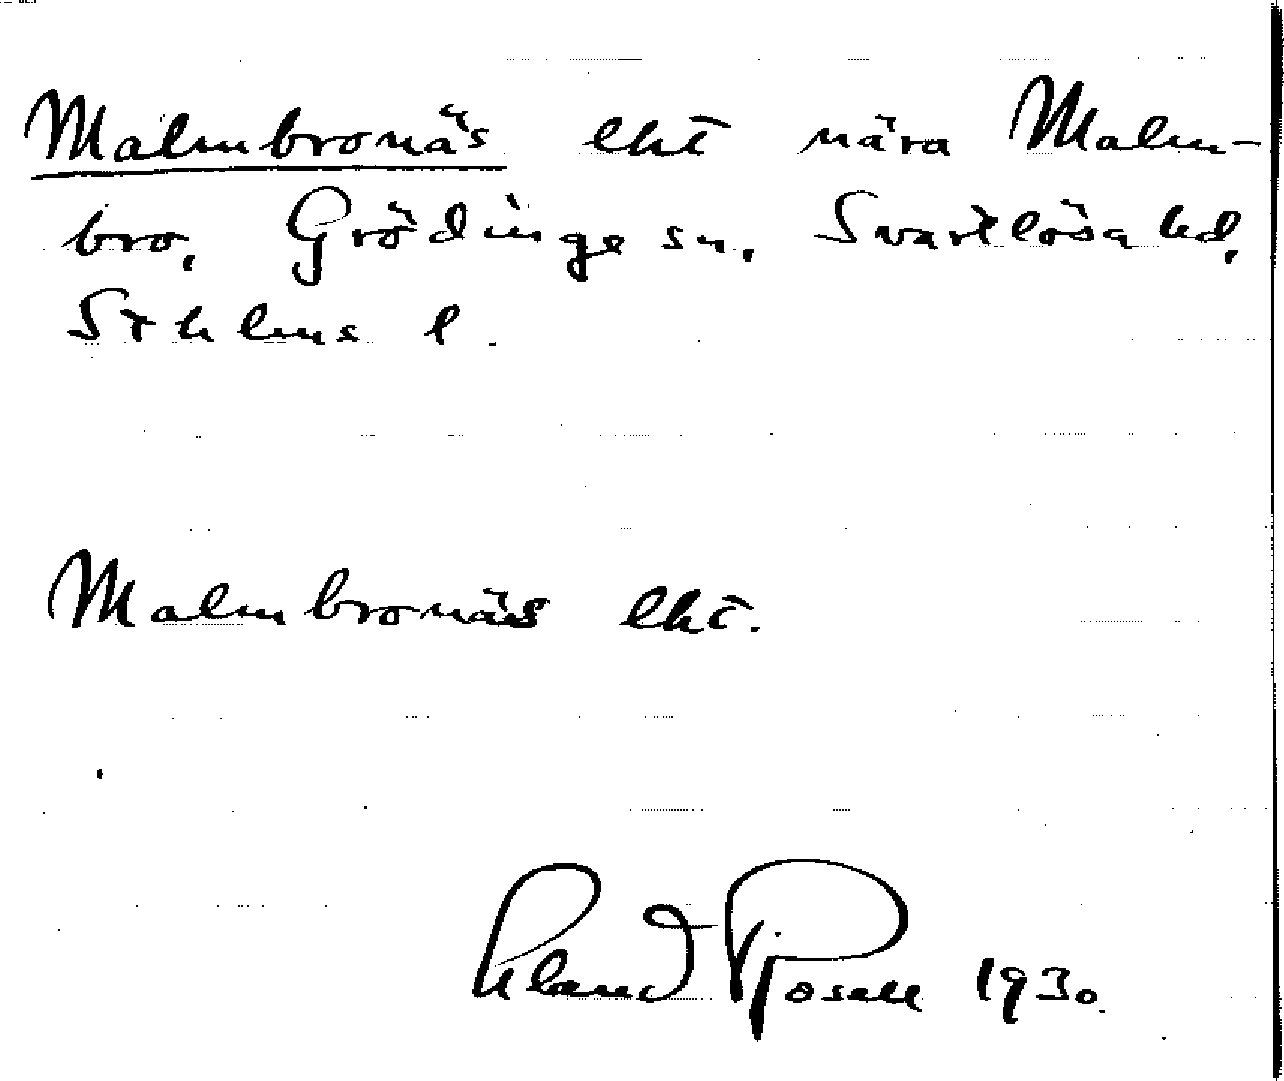 Malmbronäs lht nära Malm-
bro, Grödinge sn, Svartlösa hd,
Sthlms l.
Malmbronäs lht.
Erland Rosell 1930.